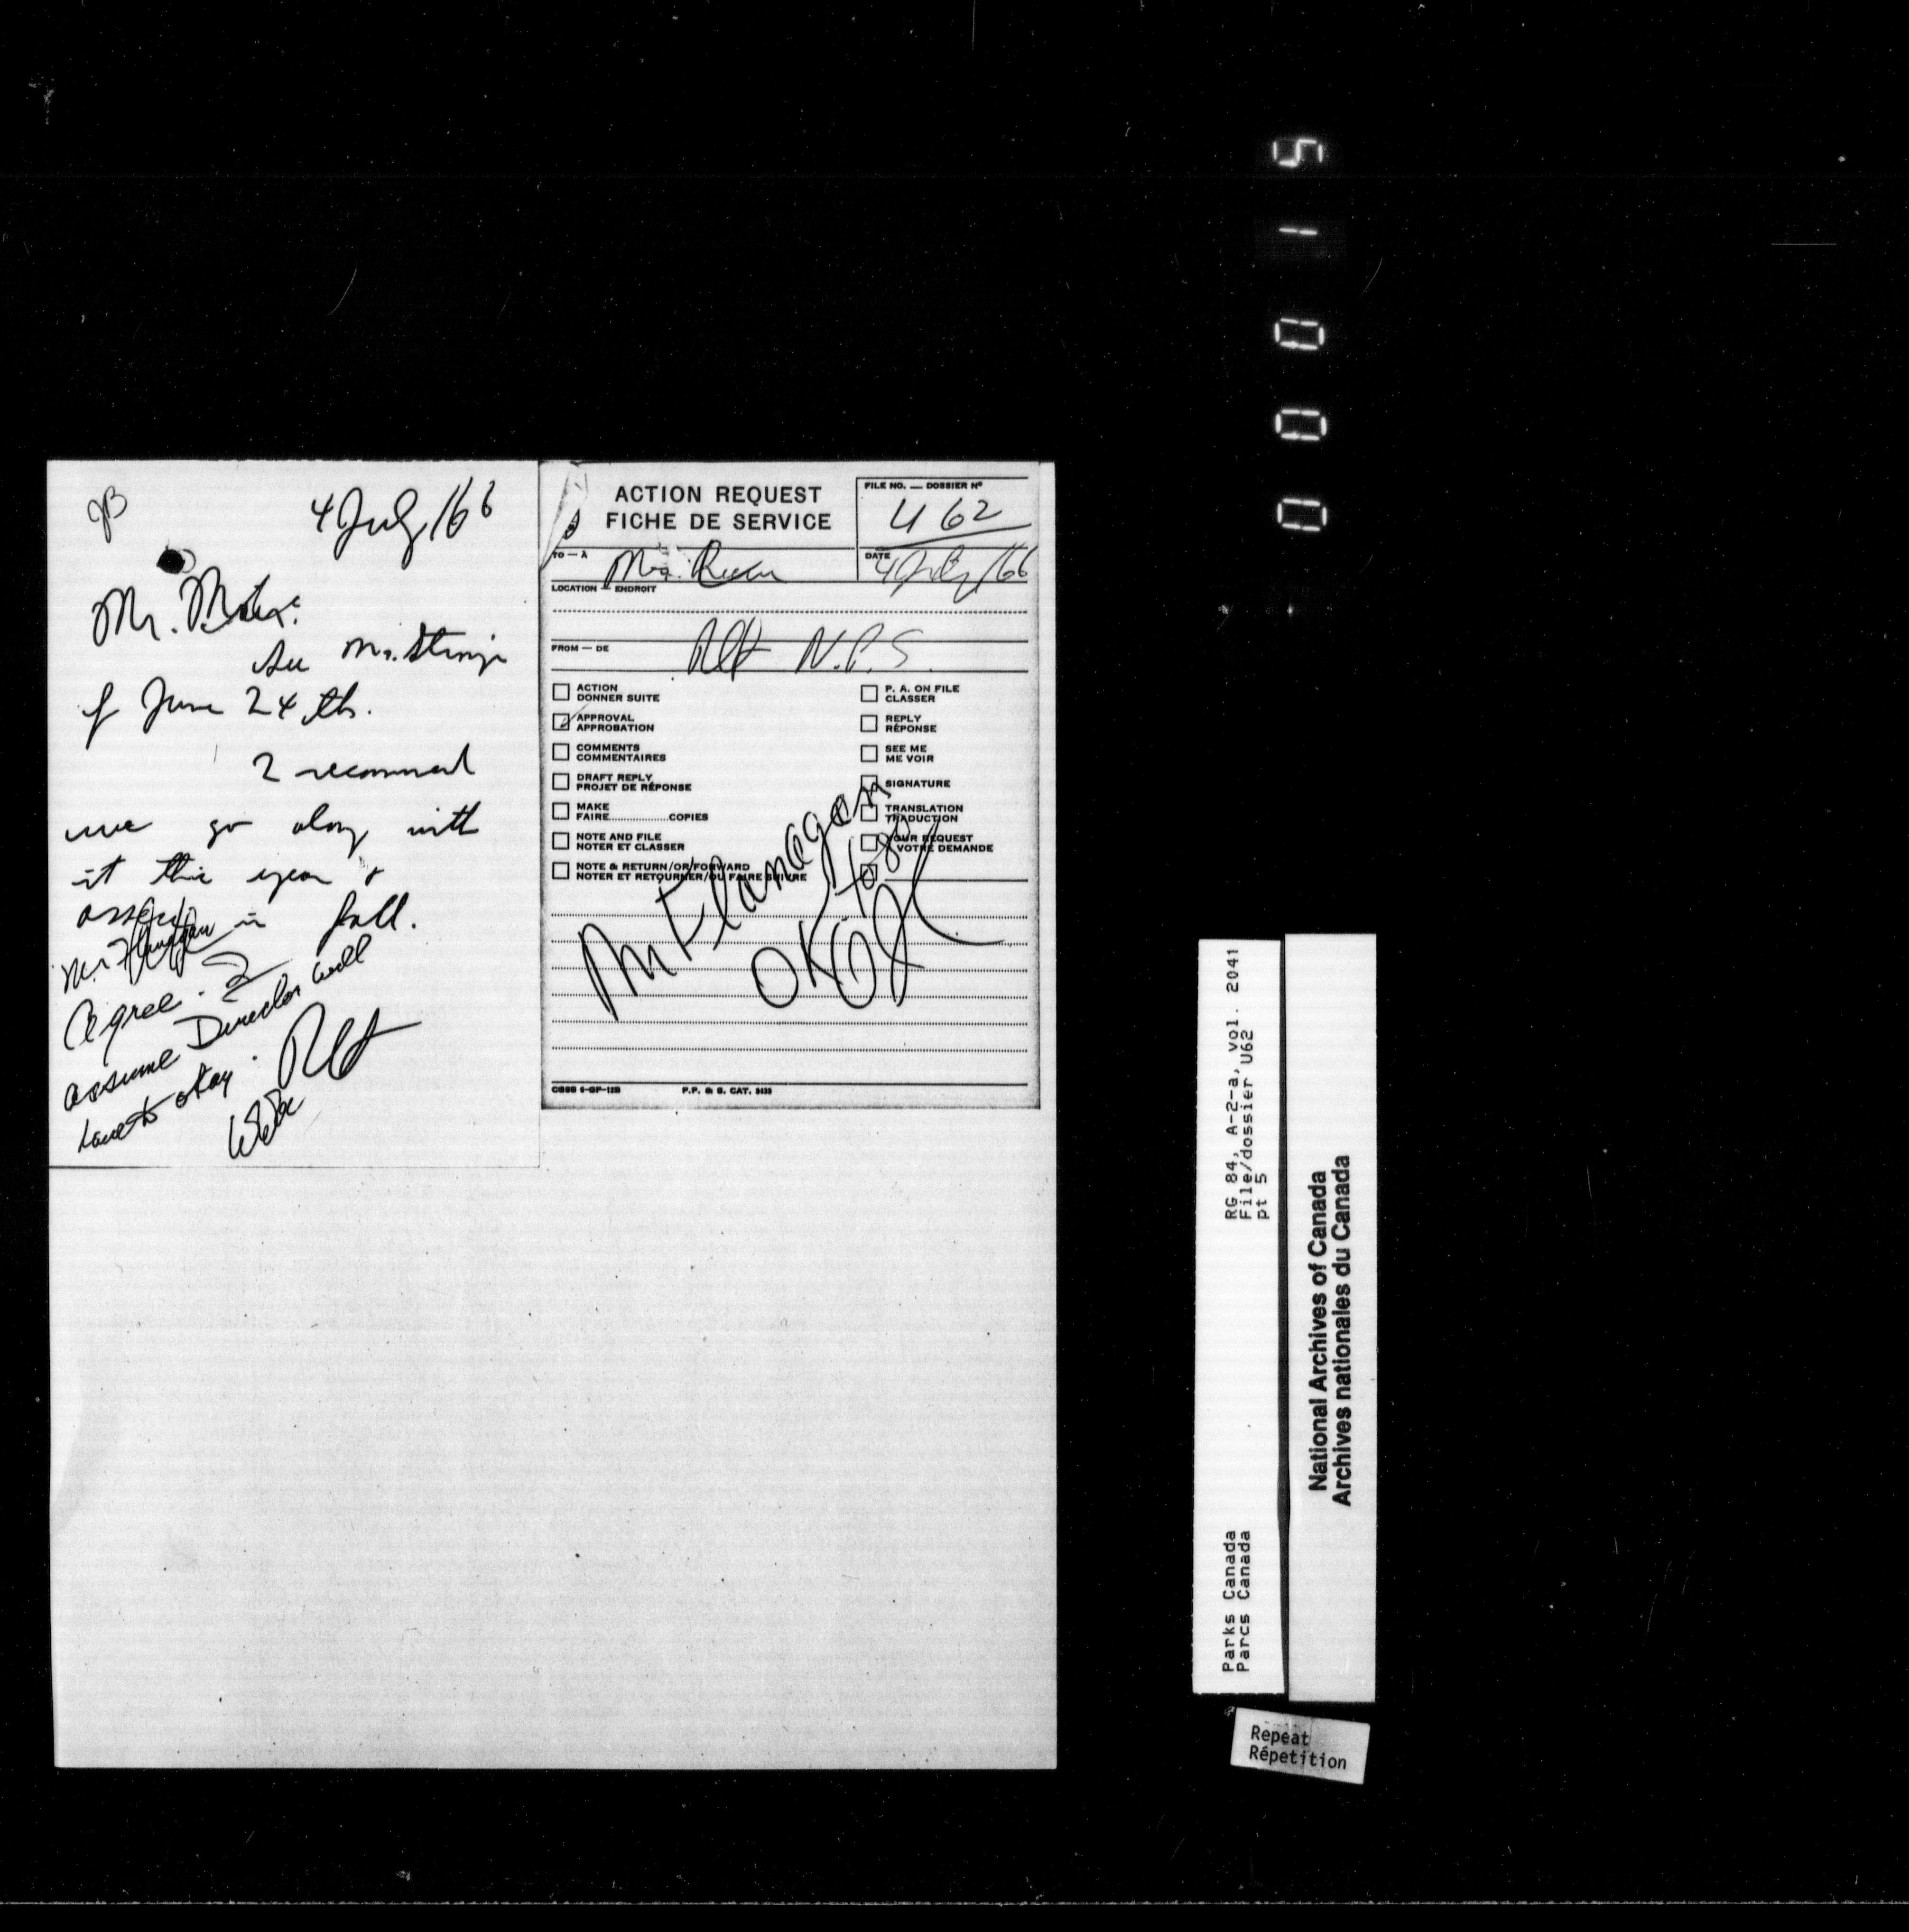 JB
4 July/66
Mr.
See Mr. Strong
of June 24th.
I recommend
we go along with
it this year &
assess in fall.
Mr. Flanagan
Agree. I
assume Director will
have to okay.
ACTION REQUEST
FICHE DE SERVICE
FILE NO. — DOSSIER Nº
U 62
TO — À
Mr.
DATE
4 July/66
LOCATION — ENDROIT
FROM — DE
N.P.S.
ACTION
DONNER SUITE
P. A. ON FILE
CLASSER
APPROVAL
APPROBATION
REPLY
RÉPONSE
COMMENTS
COMMENTAIRES
SEE ME
ME VOIR
DRAFT REPLY
PROJET DE RÉPONSE
SIGNATURE
MAKE
FAIRE............COPIES
TRANSLATION
TRADUCTION
NOTE AND FILE
NOTER ET CLASSER
YOUR REQUEST
VOTRE DEMANDE
NOTE & RETURN/OR/FORWARD
NOTER ET RETOURNER/OU FAIRE SUIVRE
Mr Flanagan
to go
OK
CGSB 6-GP-12B
P.P. & S. CAT. 3433
51000
RG 84, A-2-a, vol. 2041
File/dossier U62
pt 5
Parks Canada
Parcs Canada
National Archives of Canada
Archives nationales du Canada
Repeat
Répetition